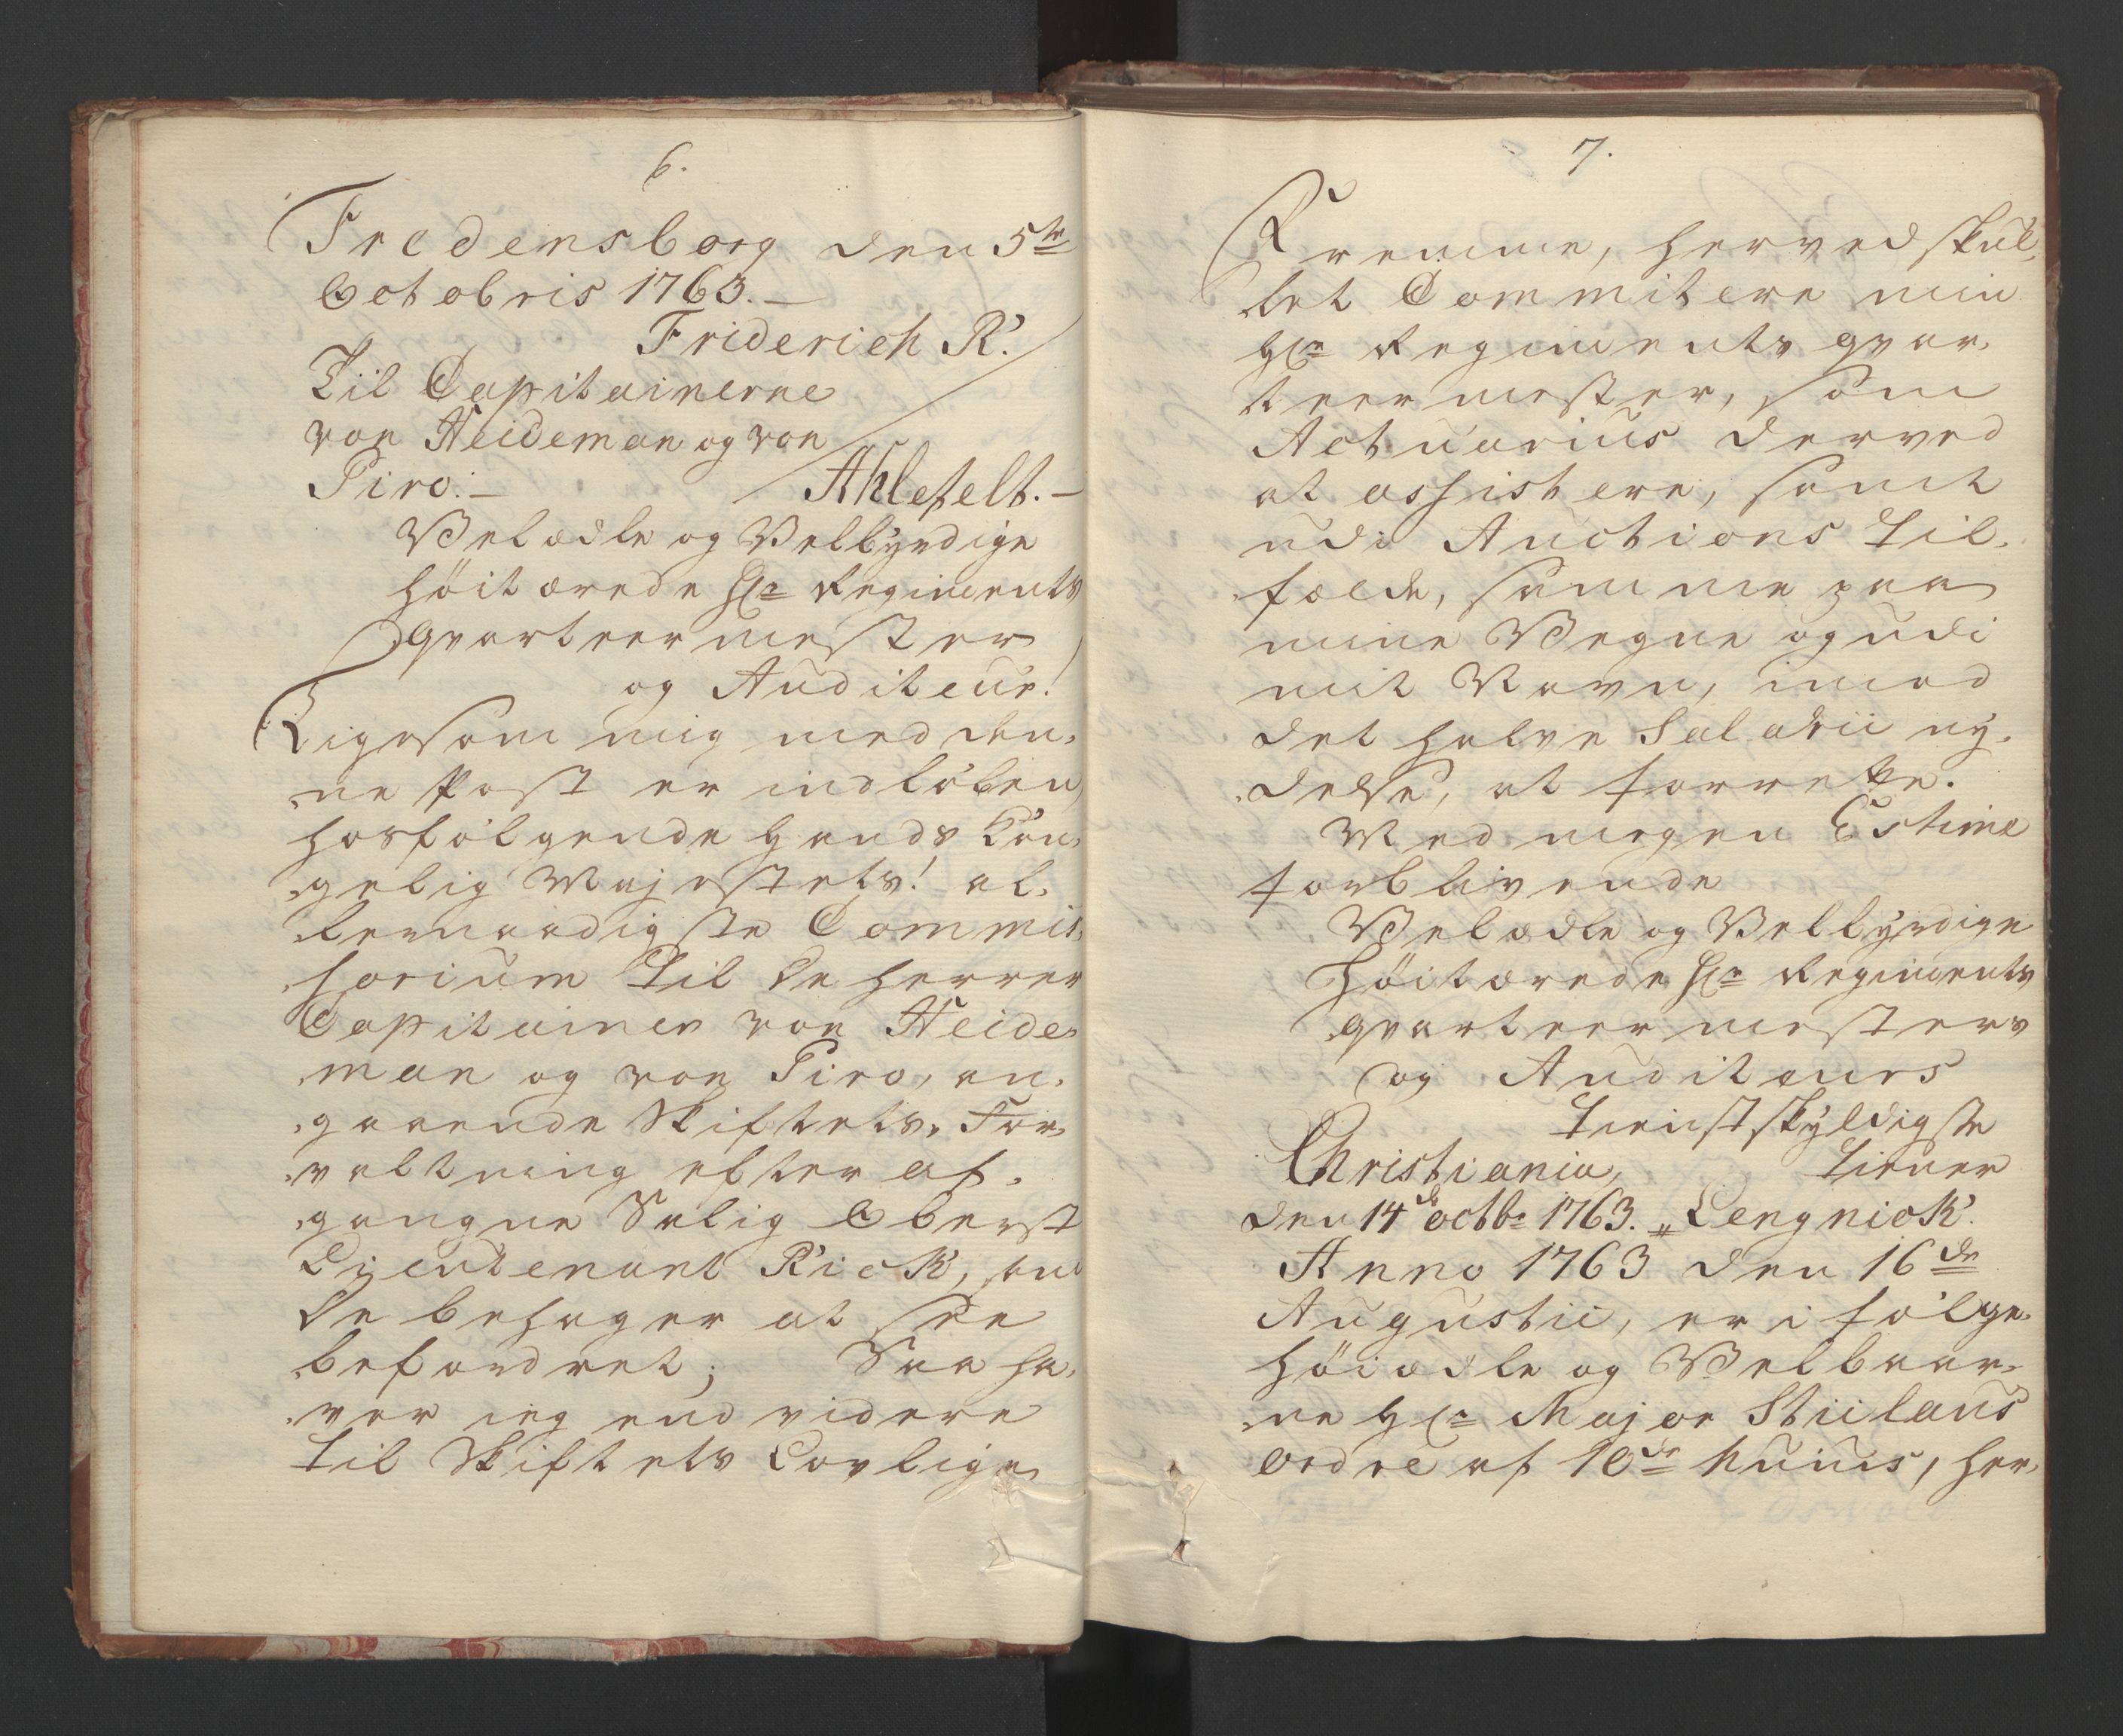 6.
Fredensborg den 5te
Octobris 1763.—
Friderich R.
Til Capitainerne
von Heideman og von
Piro.—
Ahlefelt.—
Velædle og Velbyrdige
höitærede Hr Regiments
qvarteermester
og Auditeur!
Ligesom mig med den,
,ne Post er indlöben
hosfölgende Hands Kon,
,gelig Majestets! al,
,lernaadigste Commis,
,sorium til De Herrer
Capitainer von Heide,
,man og von Piro, an,
,gaaende Skiftets For,
,valtning efter af,
,gangne Salig Oberst
Lieutenant Rick, som
De behager at see
befordret; Saa ha,
,ver ieg end videre
til Skiftets Lovlige
7.
Fremme, herved skul,
,let Committere min
Hr Regiments qvar,
teermester, som
Actuarius derved
at assistere, samt
udi Auctions til,
,fælde, samme paa
mine Vegne og udi
mit Navn, imod
det halve Salarii ny,
,delse, at forrette.
Med megen Estime
forblivende
Velædle og Velbyrdige
Höitærede Hr Regiments
qvarteermesters
og Auditeurs
tienstskyldigste
Christiania, tiener
den 14de octbr 1763. „ Lengnick.
Anno 1763 den 16de
Augustii, er i fölge
höiædle og Velbaar,
,ne Hr Major Stiilaus
Ordre af 10de huius, her,